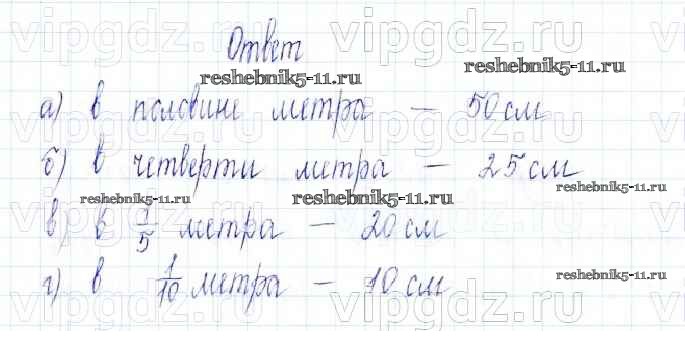 vipgdz.ru vipgdz.ru
Ответ
reshebnik5-11.ru reshebnik5-11.ru
а) в половине метра — 50 см
vipgdz.ru vipgdz.ru
б) в четверти метра — 25 см
reshebnik5-11.ru reshebnik5-11.ru reshebnik5-11.ru
в) в 1/5 метра — 20 см
г) в 1/10 метра — 10 см
reshebnik5-11.ru
vipgdz.ru vipgdz.ru